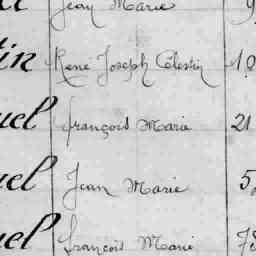 Jean Marie
in René Joseph Célestin
uel françois Marie 21
uel Jean Marie 5
uel françois Marie